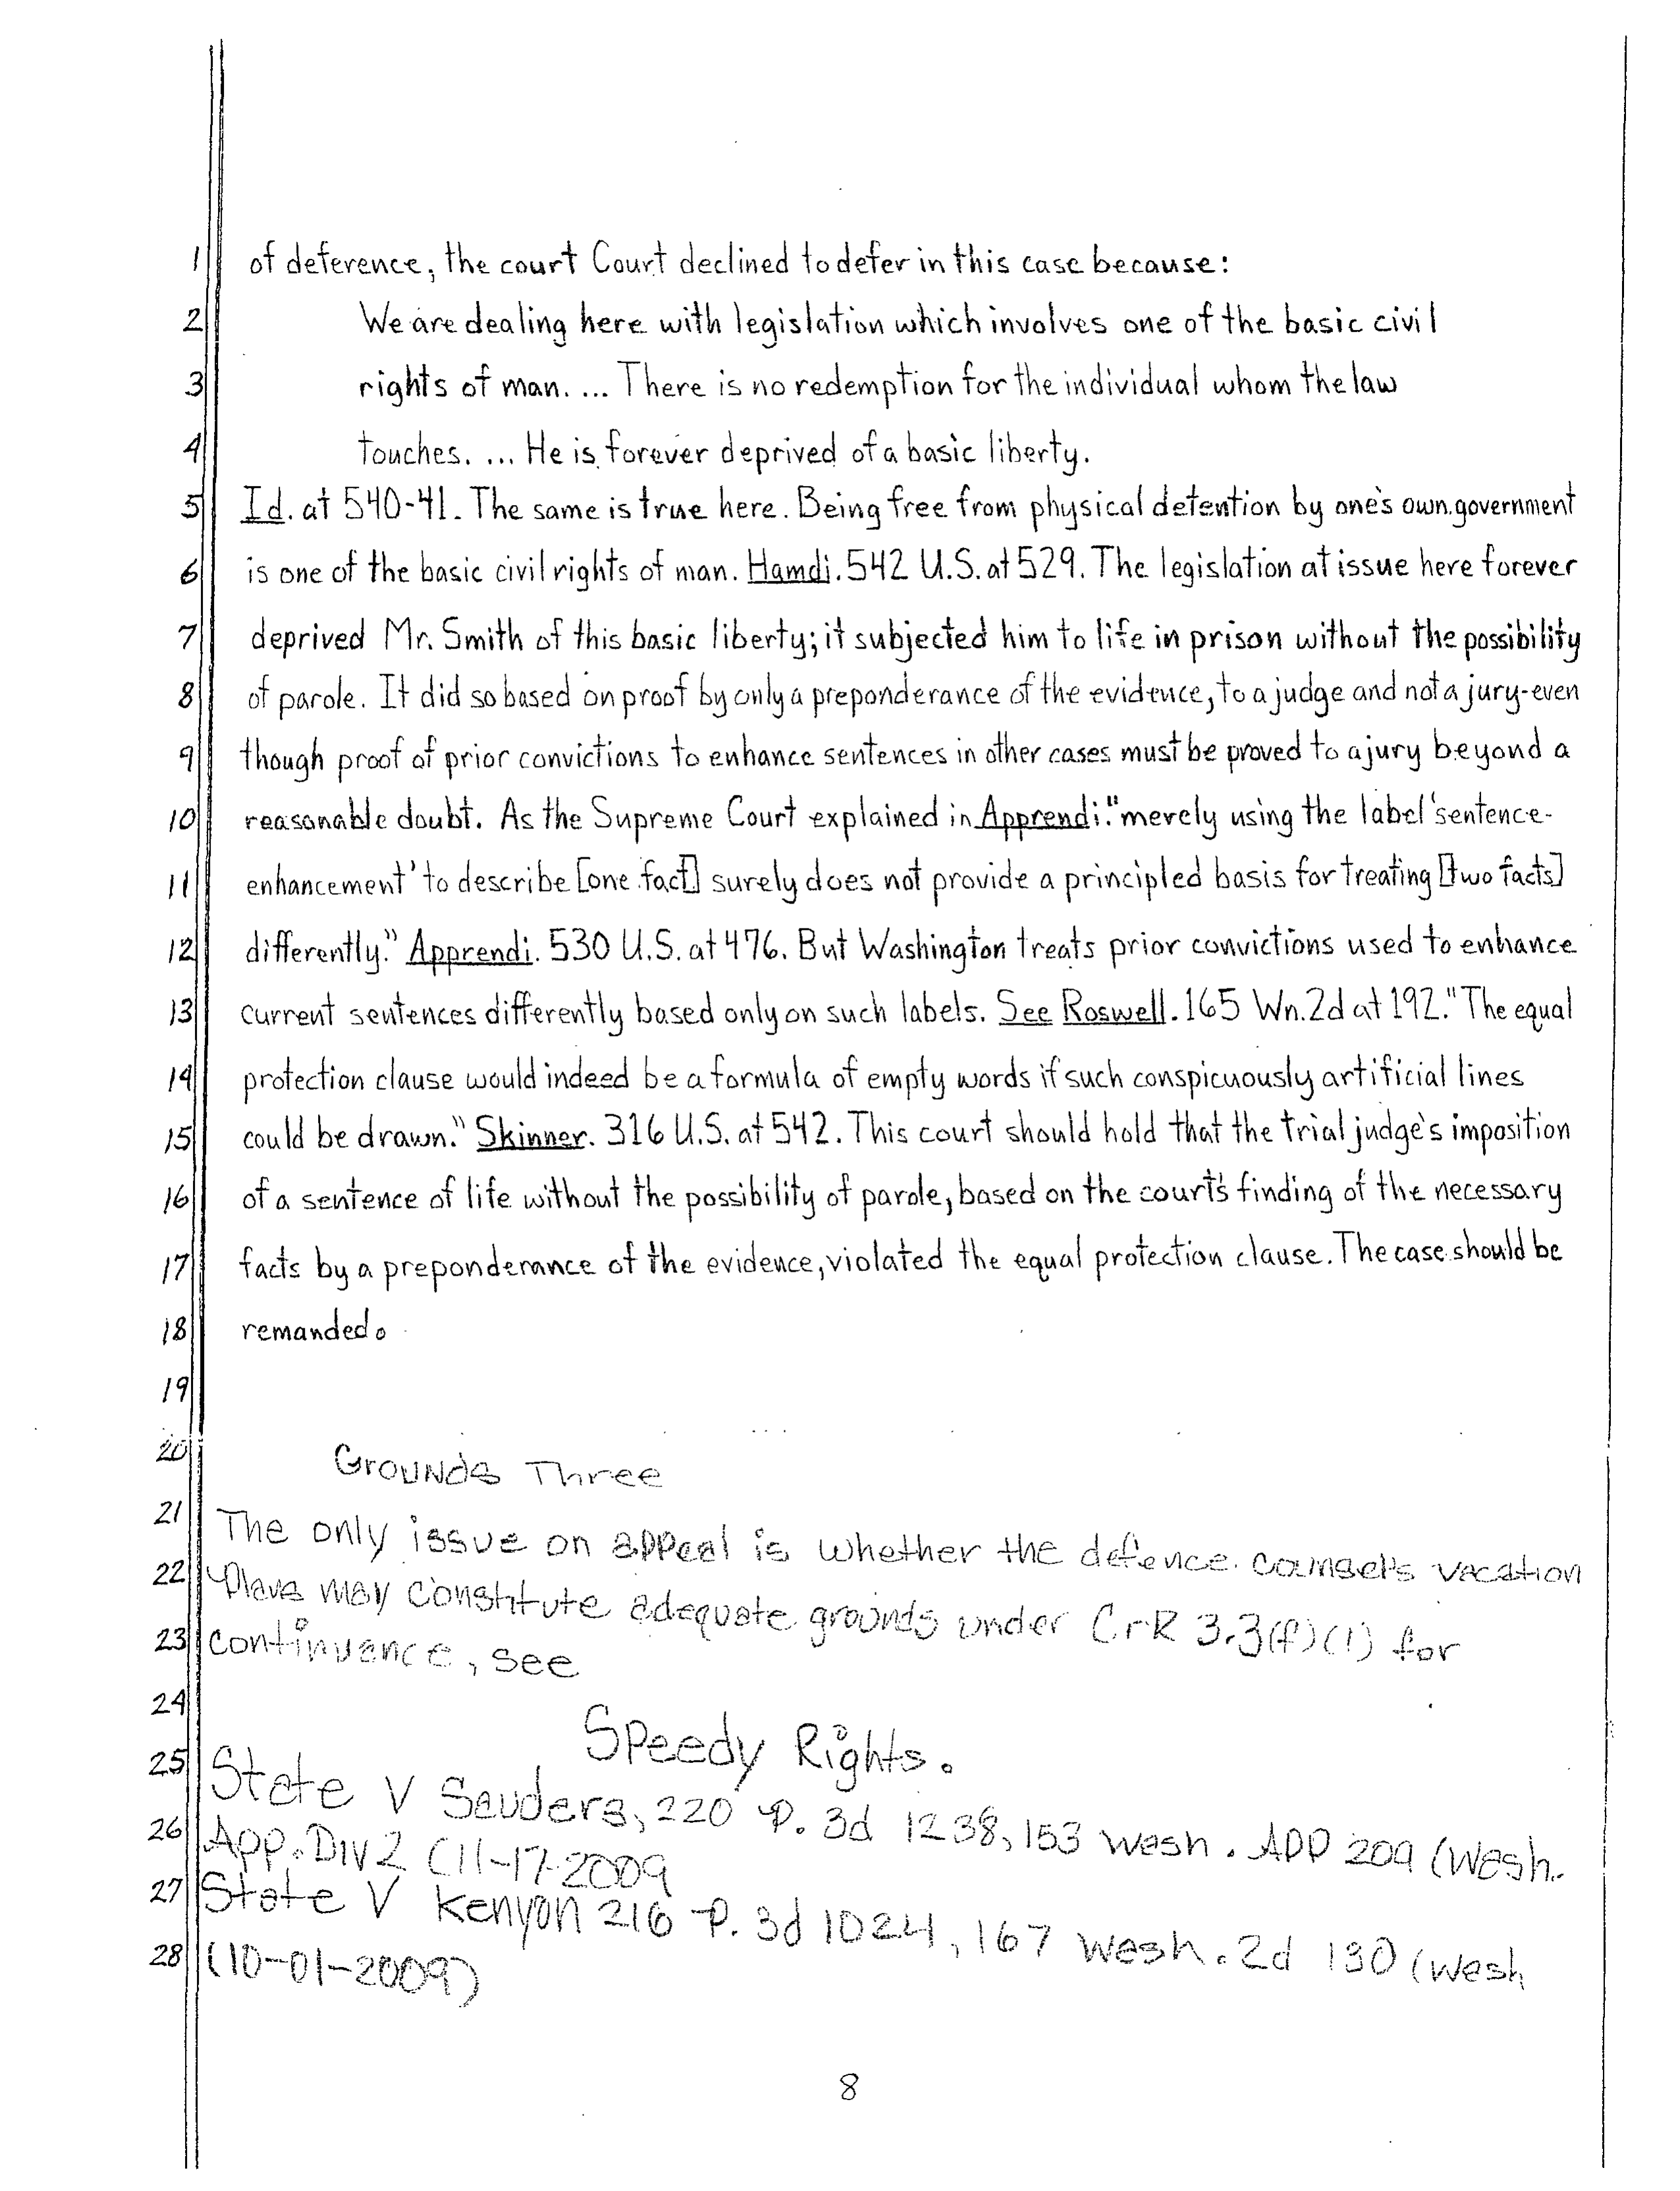 1 of deference, the court Court declined to defer in this case because:
2 We are dealing here with legislation which involves one of the basic civil
3 rights of man. ... There is no redemption for the individual whom the law
4 touches. ... He is forever deprived of a basic liberty.
5 Id. at 540-41. The same is true here. Being free from physical detention by one's own government
6 is one of the basic civil rights of man. Hamdi. 542 U.S. at 529. The legislation at issue here forever
7 deprived Mr. Smith of this basic liberty; it subjected him to life in prison without the possibility
8 of parole. It did so based on proof by only a preponderance of the evidence, to a judge and not a jury-even
9 though proof of prior convictions to enhance sentences in other cases must be proved to a jury beyond a
10 reasonable doubt. As the Supreme Court explained in Apprendi: "merely using the label 'sentence-
11 enhancement' to describe [one fact] surely does not provide a principled basis for treating [two facts]
12 differently." Apprendi. 530 U.S. at 476. But Washington treats prior convictions used to enhance
13 current sentences differently based only on such labels. See Roswell. 165 Wn.2d at 192. "The equal
14 protection clause would indeed be a formula of empty words if such conspicuously artificial lines
15 could be drawn." Skinner. 316 U.S. at 542. This court should hold that the trial judge's imposition
16 of a sentence of life without the possibility of parole, based on the court's finding of the necessary
17 facts by a preponderance of the evidence, violated the equal protection clause. The case should be
18 remanded.
19
20 Grounds Three
21 The only issue on appeal is whether the defence counsel's vacation
22 Plans may constitute adequate grounds under CrR 3.3(f)(1) for
23 continuance, see
24 Speedy Rights.
25 State V Sauders, 220 P. 3d 1238, 153 Wash. App 209 (Wash.
26 App. Div 2 (11-17-2009
27 State V Kenyon 216 P. 3d 1024, 167 Wash. 2d 130 (Wash
28 (10-01-2009)
8